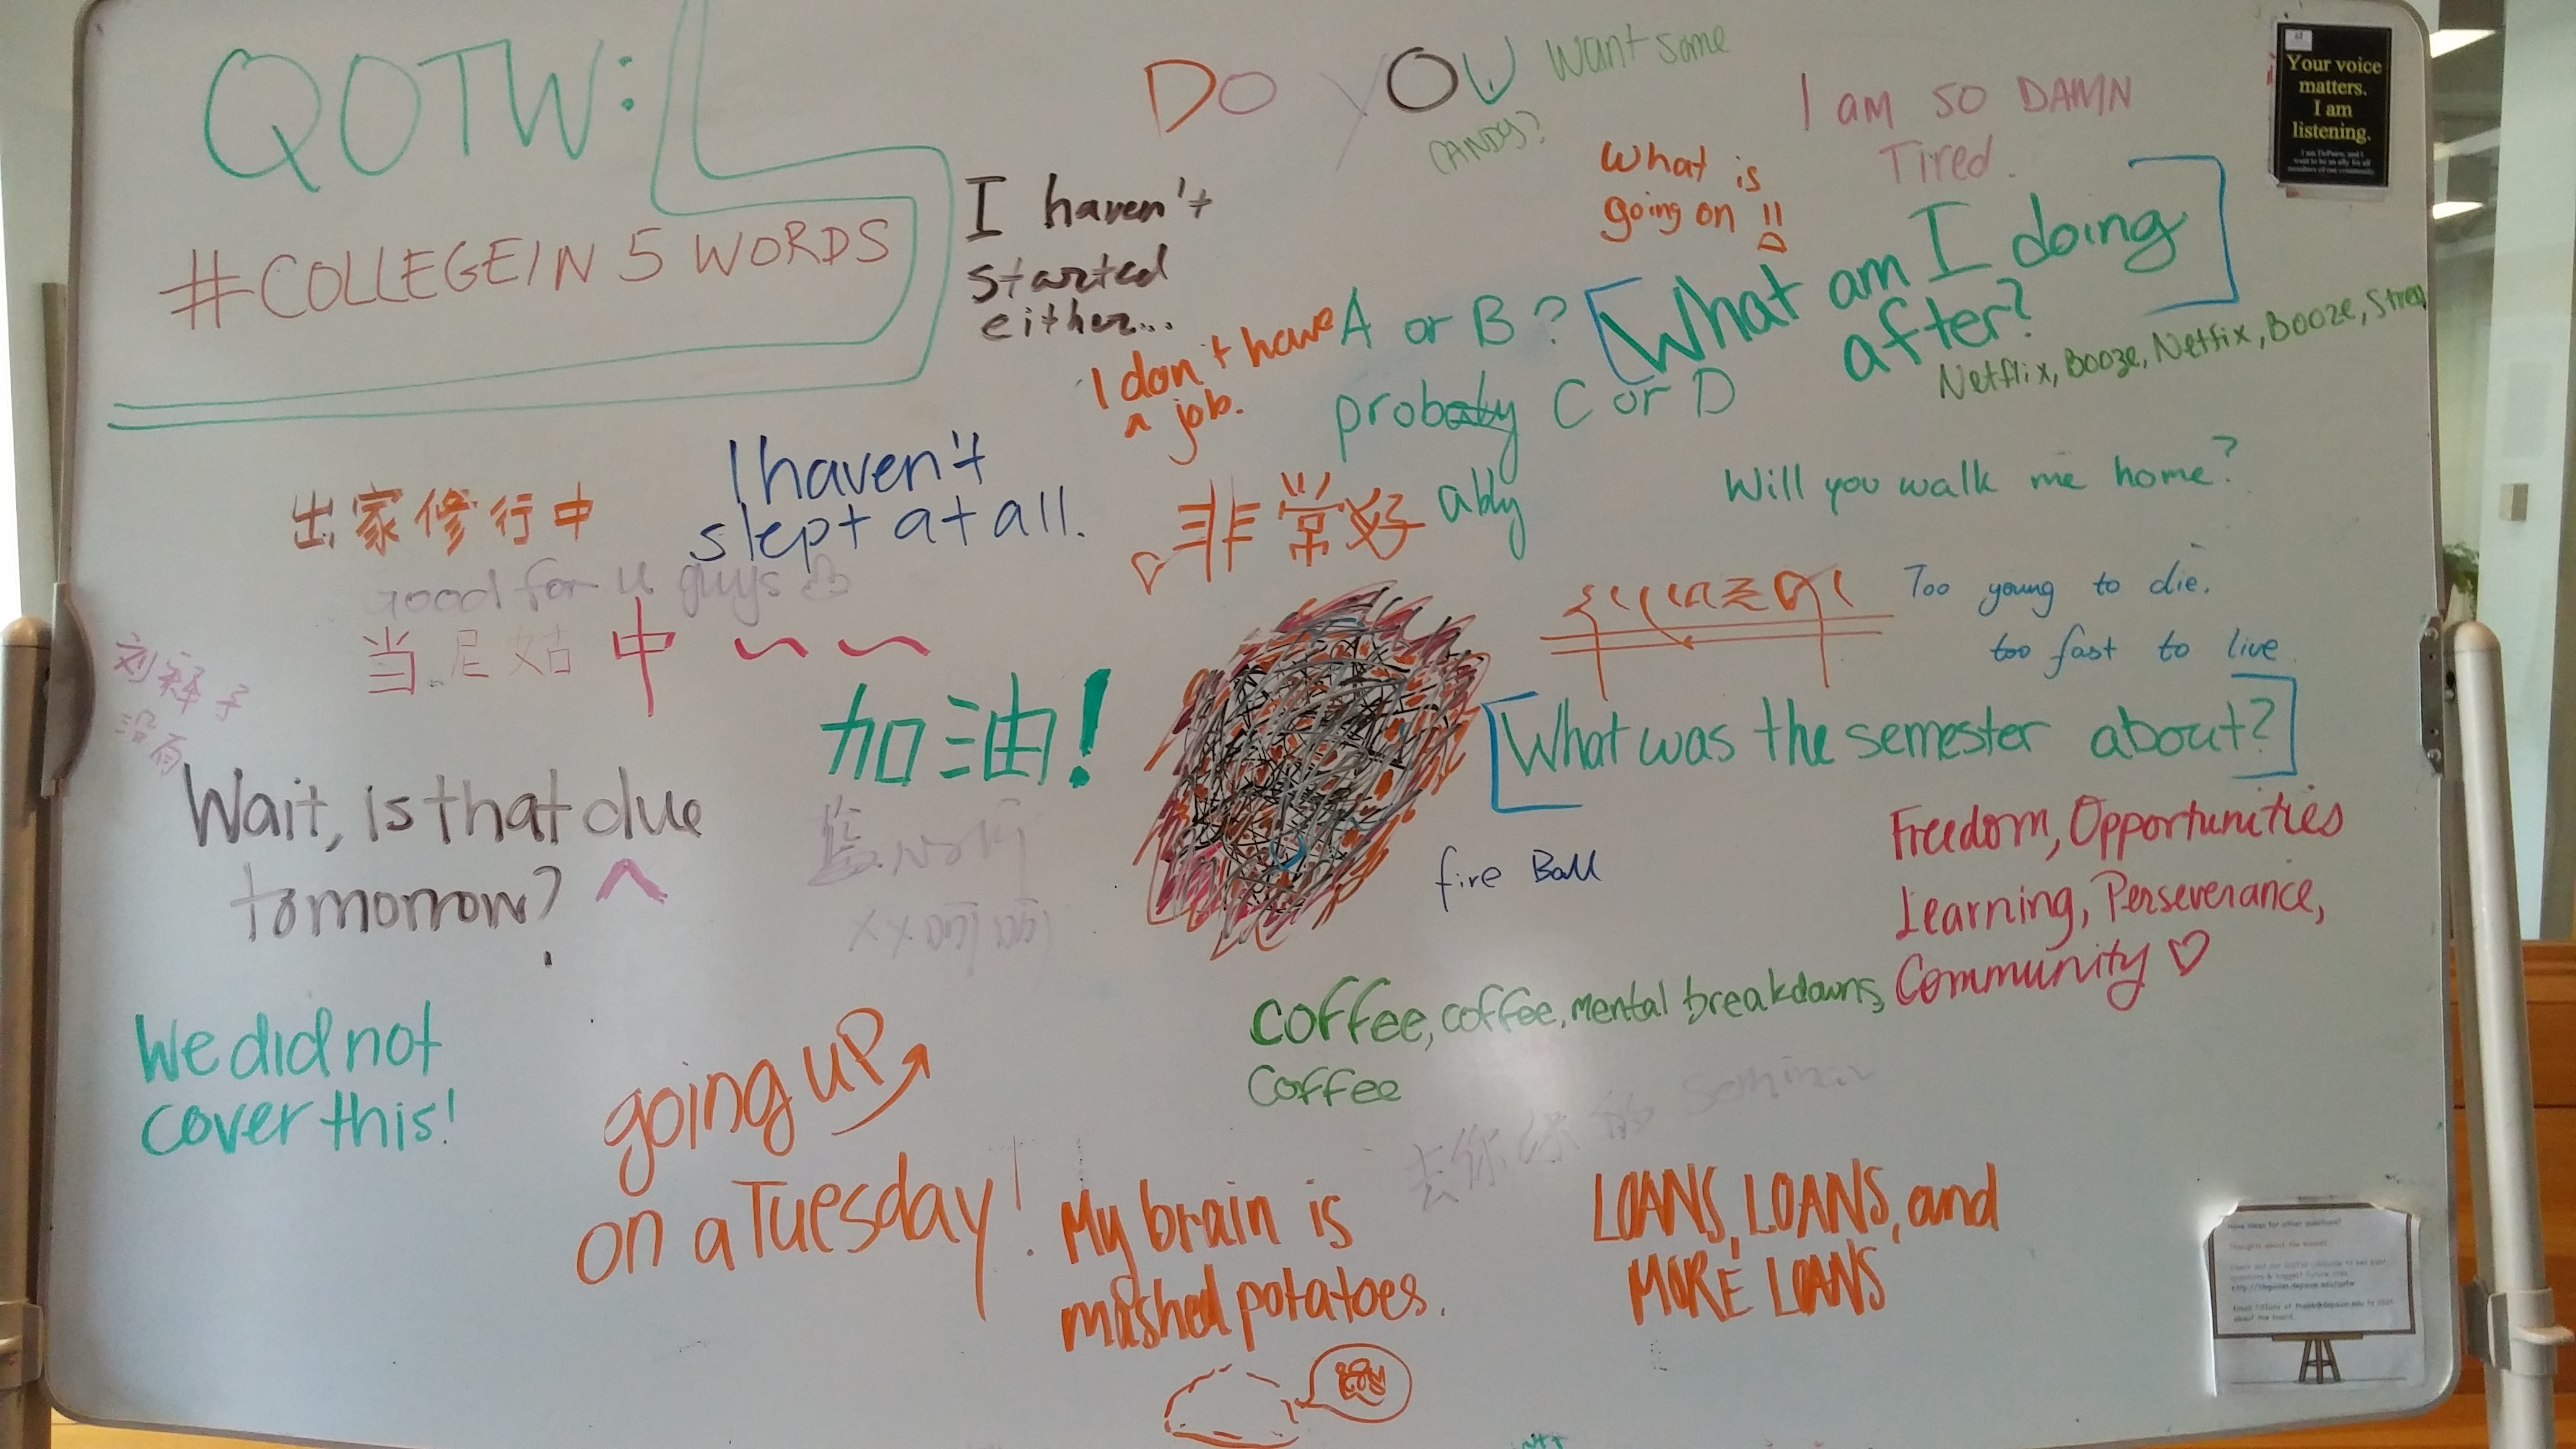 QOTW:
#COLLEGEIN 5 WORDS
DO YOU want some
CANDY?
I am SO DAMN
Tired.
What is
going on !!
I haven't
started
either...
What am I doing
after?
Netflix, Booze, Netflix, Booze, Stress
I don't have
a job.
A or B?
probably C or D
ably
I haven't
slept at all.
出家修行中
good for u guys
当尼姑中~~
刘释子
没有
非常好
Will you walk me home?
Too young to die.
too fast to live
加油!
What was the semester about?
Wait, is that due
tomorrow?
fire Ball
Freedom, Opportunities
Learning, Perseverance,
Community ♡
Coffee, coffee, mental breakdowns,
Coffee
We did not
cover this!
going up
on a Tuesday!
去你 的 seminar
My brain is
mashed potatoes.
LOANS, LOANS, and
MORE LOANS
Your voice
matters.
I am
listening.
I am DePauw, and I
want to be an ally for all
members of our community.
Have ideas for other questions?